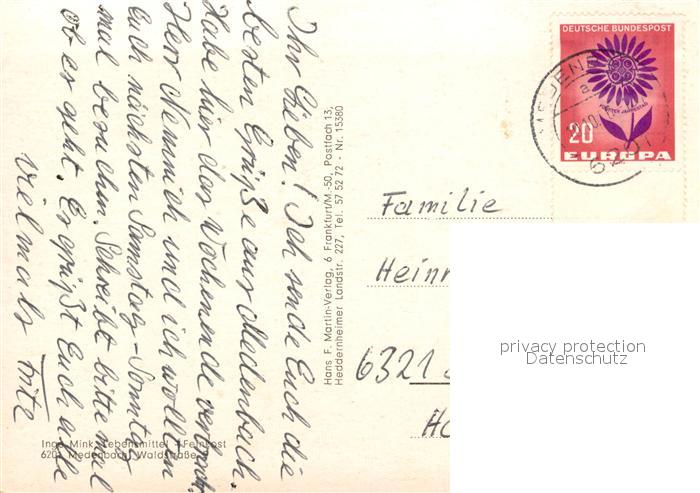 Ihr Lieben! Ich sende Euch die
besten Grüße aus Medenbach.
Habe hier das Wochenende verbracht.
Herr Nemnich und ich wollen
Euch nächsten Samstag - Sonntag
mal besuchen. Schreibt bitte mal
ob er geht. Er grüßt Euch alle
vielmals
Ingo Mink, Lebensmittel - Feinkost
6201 Medenbach, Waldstraße
Hans F. Martin-Verlag, 6 Frankfurt/M.-50, Postfach 13,
Heddernheimer Landstr. 227, Tel. 57 52 72 - Nr. 15380
DEUTSCHE BUNDESPOST
20
EUROPA
a
6201
Familie
Heinr
6321
privacy protection
Datenschutz